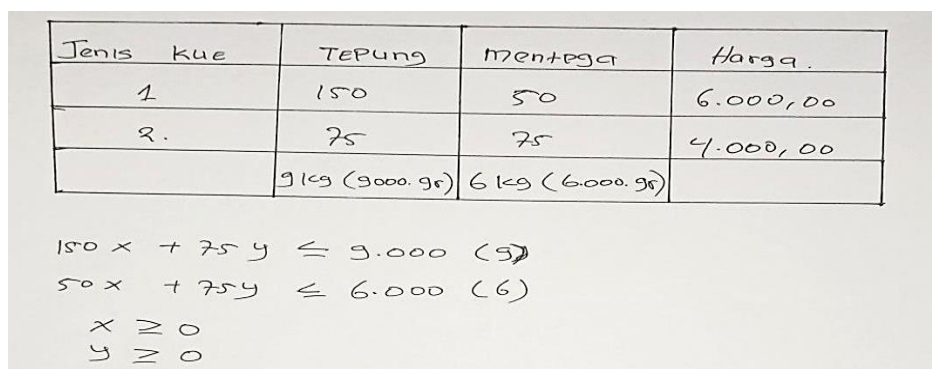 Jenis Kue Tepung Mentega Harga.
1 150 50 6.000,00
2. 75 75 4.000,00
9 kg (9000. gr) 6 kg (6.000. gr)
150 x + 75 y ≤ 9.000 (9)
50 x + 75 y ≤ 6.000 (6)
x ≥ 0
y ≥ 0